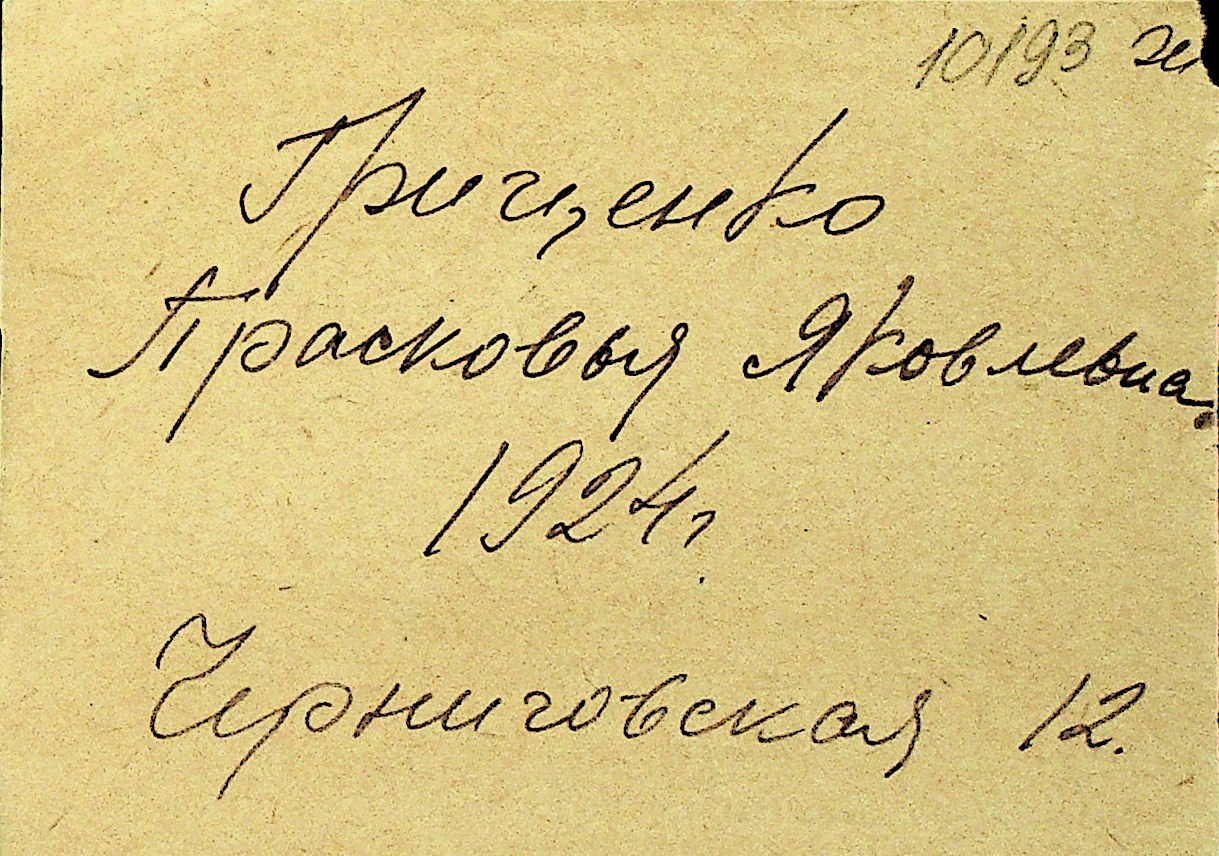 10193 ж
Грищенко
Прасковья Яковлевна.
1924г.
Черниговская 12.